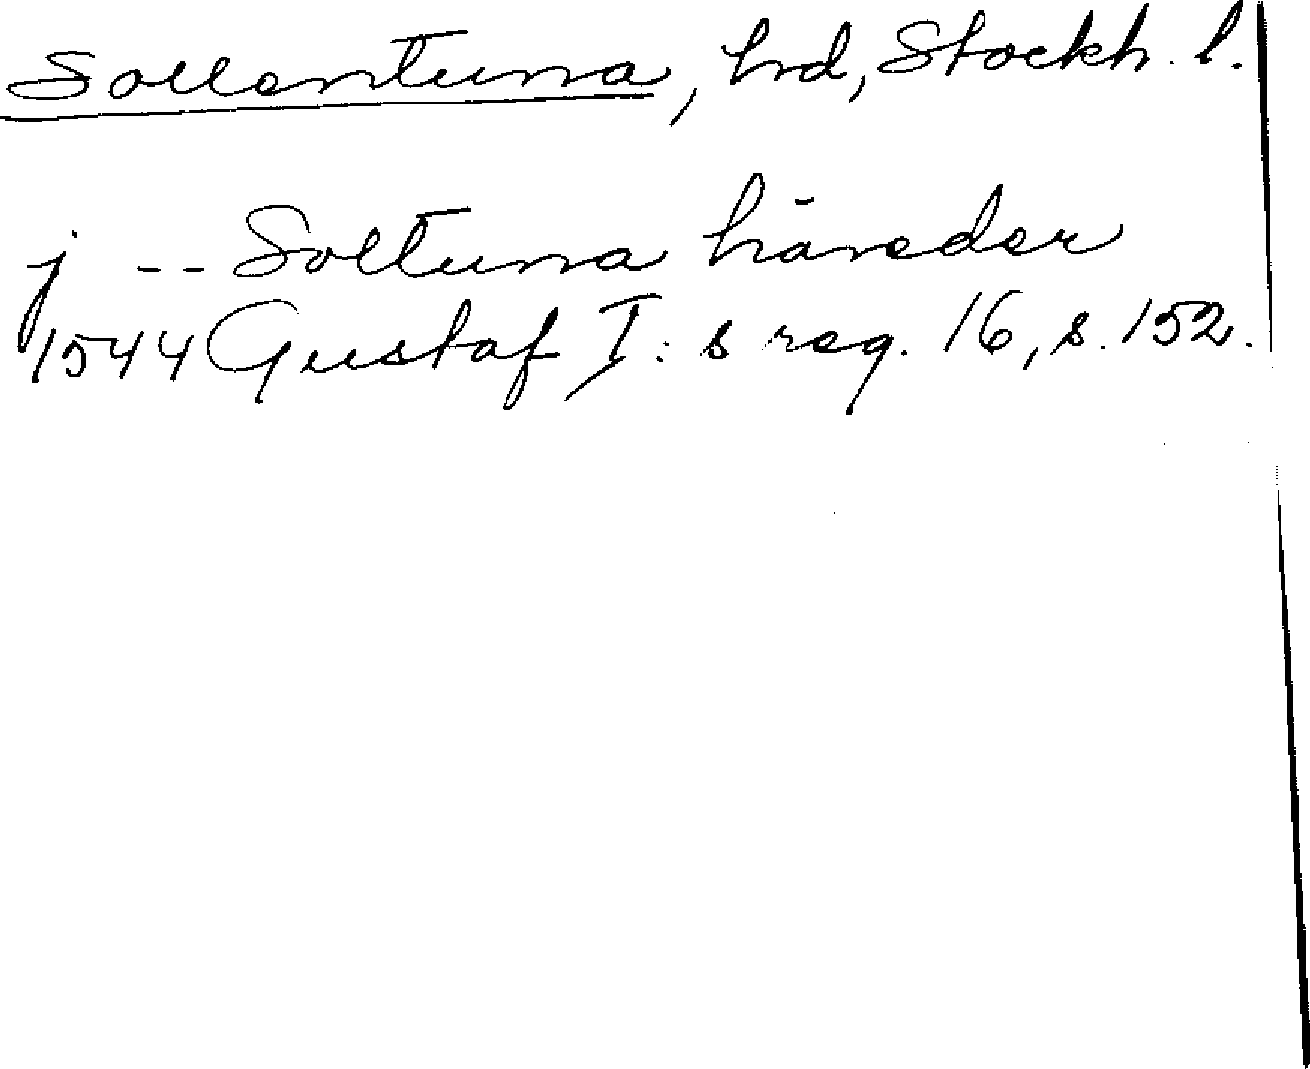 Sollentuna, hrd, Stockh. l.
j -- Soltuna häreder
1544 Gustaf I:s reg. 16, s. 152.